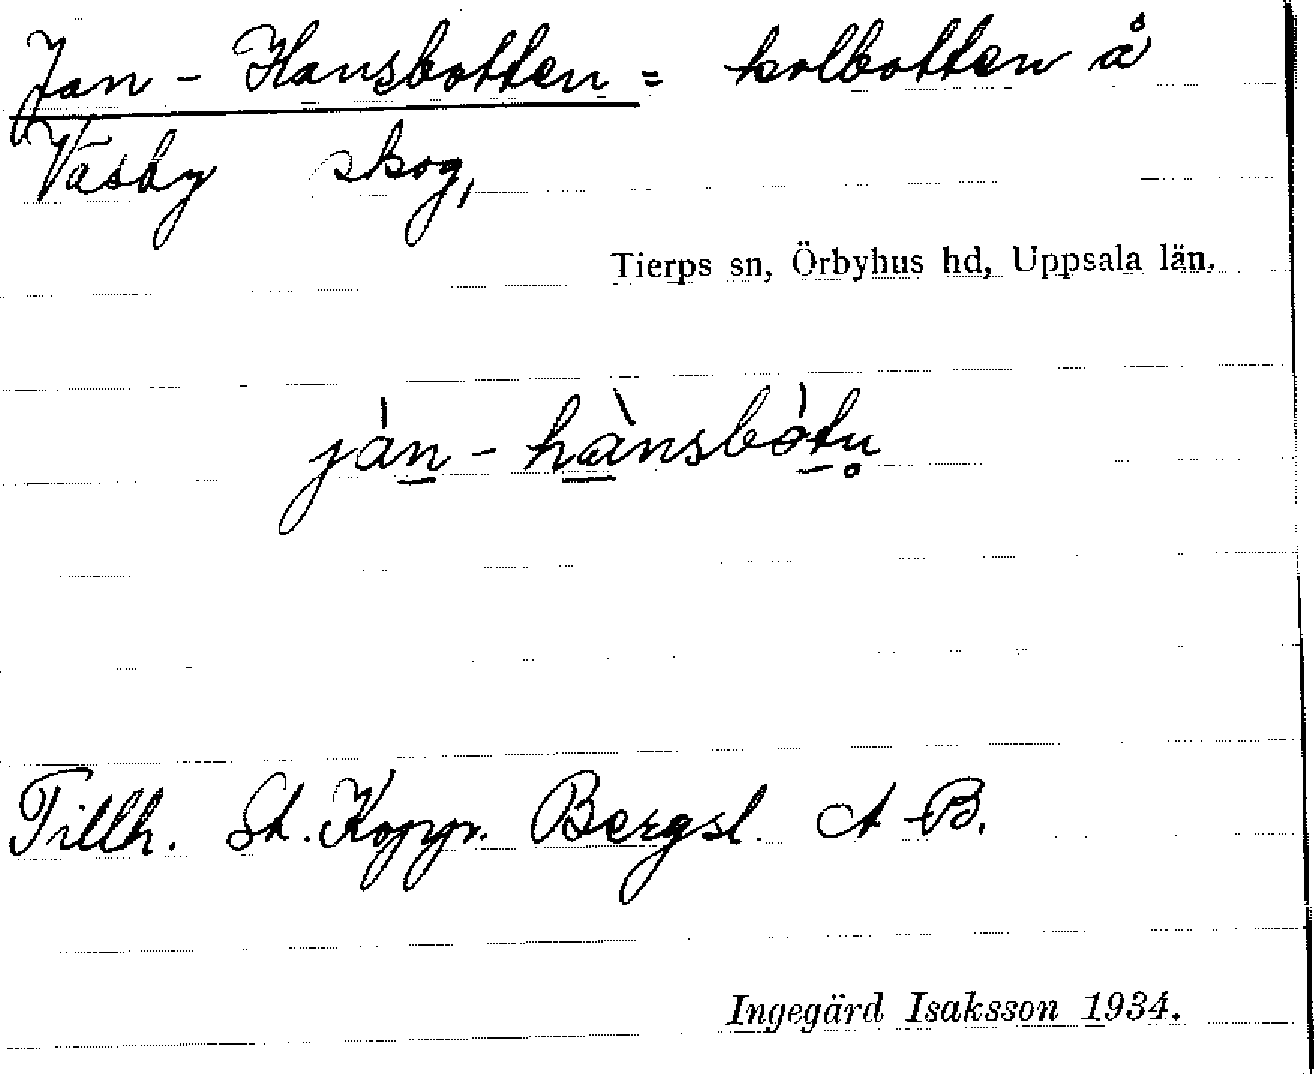 Jan - Hansbotten = kolbotten å
Väsby skog,
Tierps sn, Örbyhus hd, Uppsala län.
jàn - hànsbòtn̥
Tillh. St. Kopp. Bergsl. A-B.
Ingegärd Isaksson 1934.